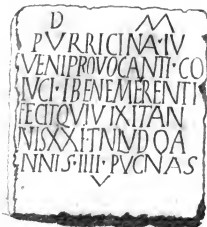 D M
PVRRICINA·IV
VENIPROVOCANTI·CO
IVCI·IBENEMERENTI
FECITQVIVIXITAN
NISXXI·TNLVDOA
NNIS·IIII·PVGNAS
V